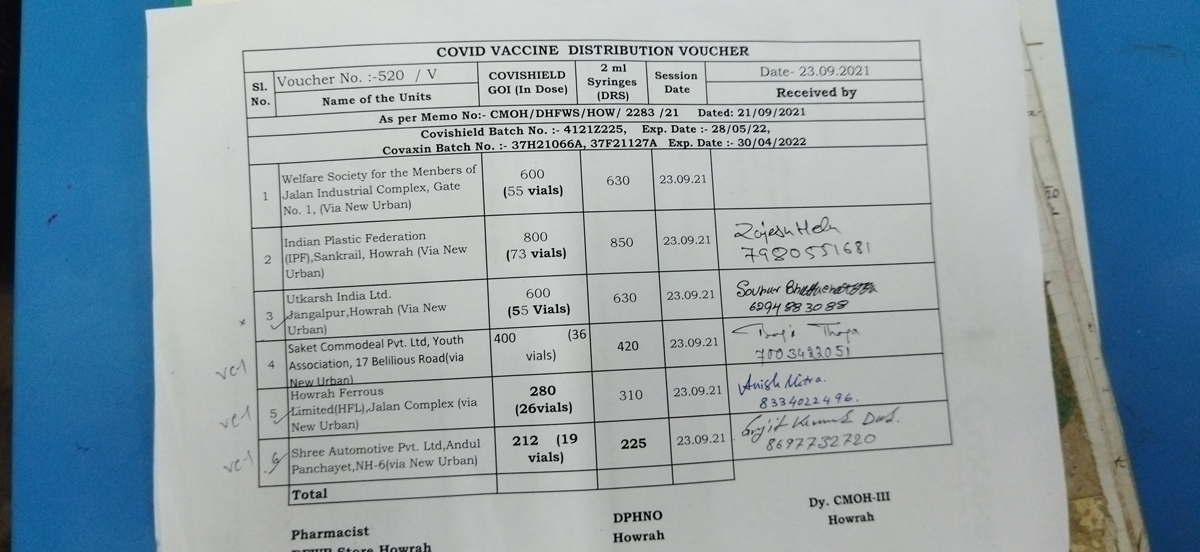 COVID VACCINE DISTRIBUTION VOUCHER
Sl. No.
Voucher No. :-520 / V
Name of the Units
COVISHIELD GOI (In Dose)
2 ml Syringes (DRS)
Session Date
Date- 23.09.2021
Received by
As per Memo No:- CMOH/DHFWS/HOW/ 2283 /21 Dated: 21/09/2021
Covishield Batch No. :- 4121Z225, Exp. Date :- 28/05/22,
Covaxin Batch No. :- 37H21066A, 37F21127A Exp. Date :- 30/04/2022
1
Welfare Society for the Menbers of
Jalan Industrial Complex, Gate
No. 1, (Via New Urban)
600
(55 vials)
630
23.09.21
2
Indian Plastic Federation
(IPF),Sankrail, Howrah (Via New
Urban)
800
(73 vials)
850
23.09.21
7980551681
x
3
Utkarsh India Ltd.
Jangalpur,Howrah (Via New
Urban)
600
(55 Vials)
630
23.09.21
6294883088
4
Saket Commodeal Pvt. Ltd, Youth
Association, 17 Belilious Road(via
New Urban)
400 (36
vials)
420
23.09.21
Thapa
7003422051
5
Howrah Ferrous
Limited(HFL),Jalan Complex (via
New Urban)
280
(26vials)
310
23.09.21
Anish Mitra.
8334022496.
6
Shree Automotive Pvt. Ltd,Andul
Panchayet,NH-6(via New Urban)
212 (19
vials)
225
23.09.21
8697732720
Total
Pharmacist
DFWB Store Howrah
DPHNO
Howrah
Dy. CMOH-III
Howrah